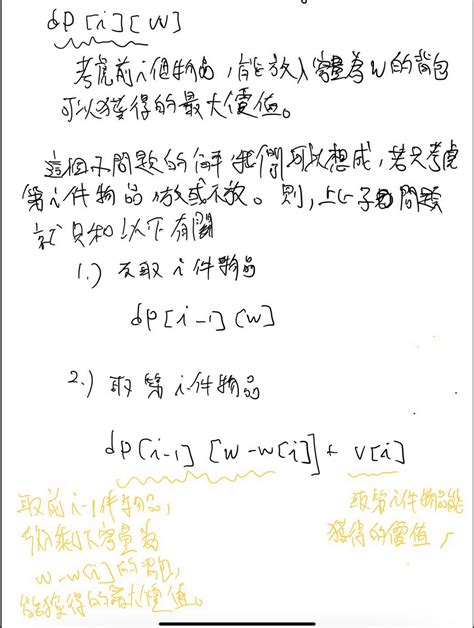 dp[i][w]
考慮前i個物品，能放入容量為w的背包
可以獲得的最大價值。
這個子問題的解我們可以想成，若只考慮
第i件物品放或不放。則，上以子問題
就只和以下有關
1.) 不取i件物品
dp[i-1][w]
2.) 取第i件物品
dp[i-1][w-w[i]] + v[i]
取前i-1件物品，
放剩下容量為
w-w[i]的背包，
能獲得的最大價值。
取第i件物品能
獲得的價值，